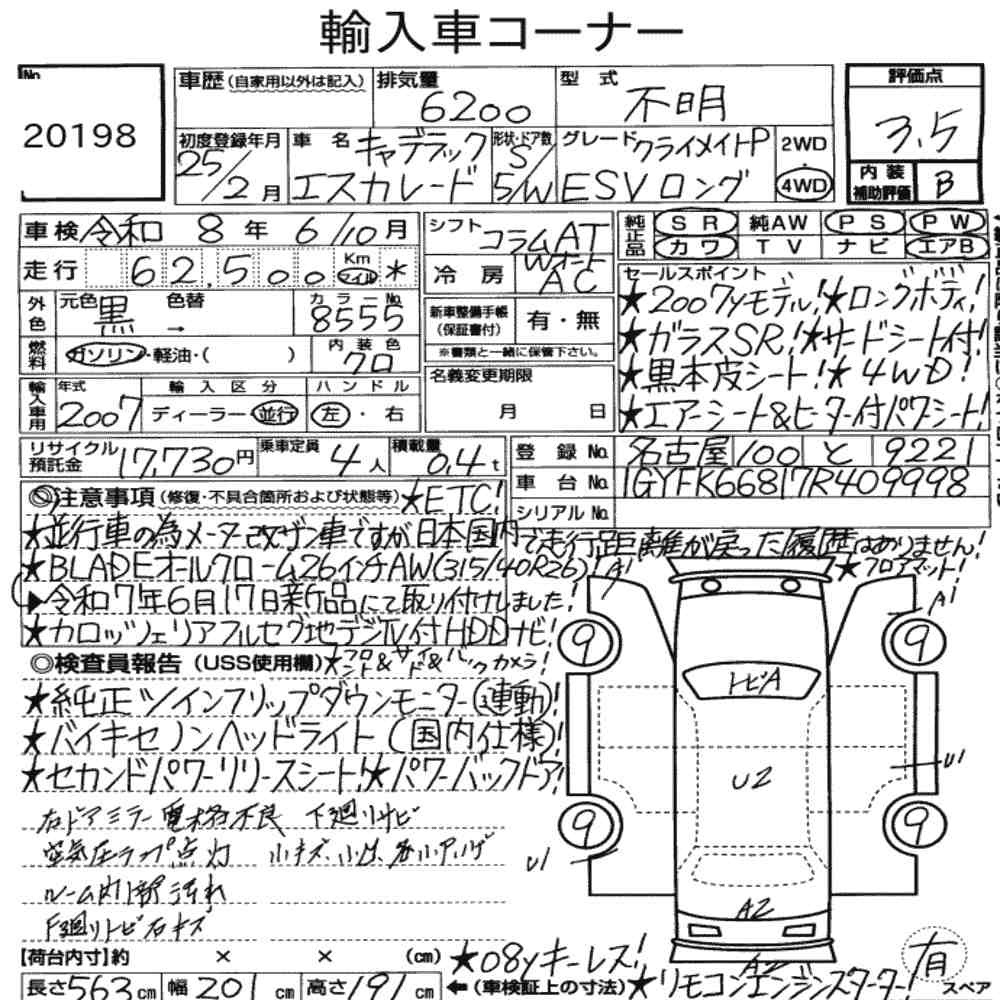 輸入車コーナー
No.
20198
車歴(自家用以外は記入)
排気量
6200
型 式
不明
評価点
3.5
内装補助評価
B
初度登録年月
25/2月
車 名
キャデラック
エスカレード
形状・ドア数
S/
5/W
グレード
クライメイトP
ESVロング
2WD
・
4WD
車検 令和 8 年 6/10 月
走行 62,500 Km マイル *
外色 元色 黒 色替 →
カラーNo. 8555
燃料 ガソリン・軽油・( )
内装色 クロ
輸入車用 年式 2007
輸入区分 ディーラー・並行
ハンドル 左・右
リサイクル預託金 17,730円
乗車定員 4人
積載量 0.4t
シフト コラムAT
冷房 WオートAC
新車整備手帳(保証書付) 有・無
※書類と一緒に保管下さい。
名義変更期限
月 日
純正品 SR 純AW PS PW
カワ TV ナビ エアB
セールスポイント
★2007yモデル!★ロングボディ!
★ガラスSR!★サードシート付!
★黒本皮シート!★4WD!
★エアーシート&ヒーター付パワシート!
登録No. 名古屋 100 と 9221
車台No. 1GYFK66817R409998
シリアルNo.
注意事項(修復・不具合箇所および状態等)★ETC!
★並行車の為メーター改ザン車ですが日本国内で走行距離が戻った履歴はありません!
★BLADEオールクローム26インチAW(315/40R26)!
★フロアマット!
▶令和7年6月17日新品にて取り付けしました!
★カロッツェリアフルセグ地デジTV付HDDナビ!
◎検査員報告(USS使用欄)★フロント&サイド&バックカメラ!
★純正ツインフリップダウンモニター(連動)!
★バイキセノンヘッドライト(国内仕様)!
★セカンドパワーリリースシート!★パワーバックドア!
右ドアミラー電格不良 下廻りサビ
空気圧ランプ点灯 小キズ、小凹、
ルーム内1部汚れ
F廻りトビ石キズ
A1
A1
9
9
トビA
U2
U1
9
9
U1
A2
A2
【荷台内寸】約 × × (cm)
★08yキーレス!
長さ563cm 幅201cm 高さ191cm
←(車検証上の寸法)★リモコンエンジンスターター!
有
スペア